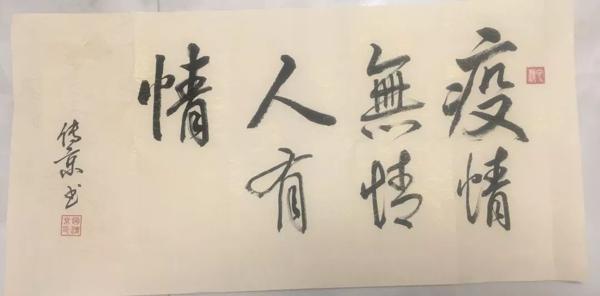 疫情
無情
人有
情
傳京书